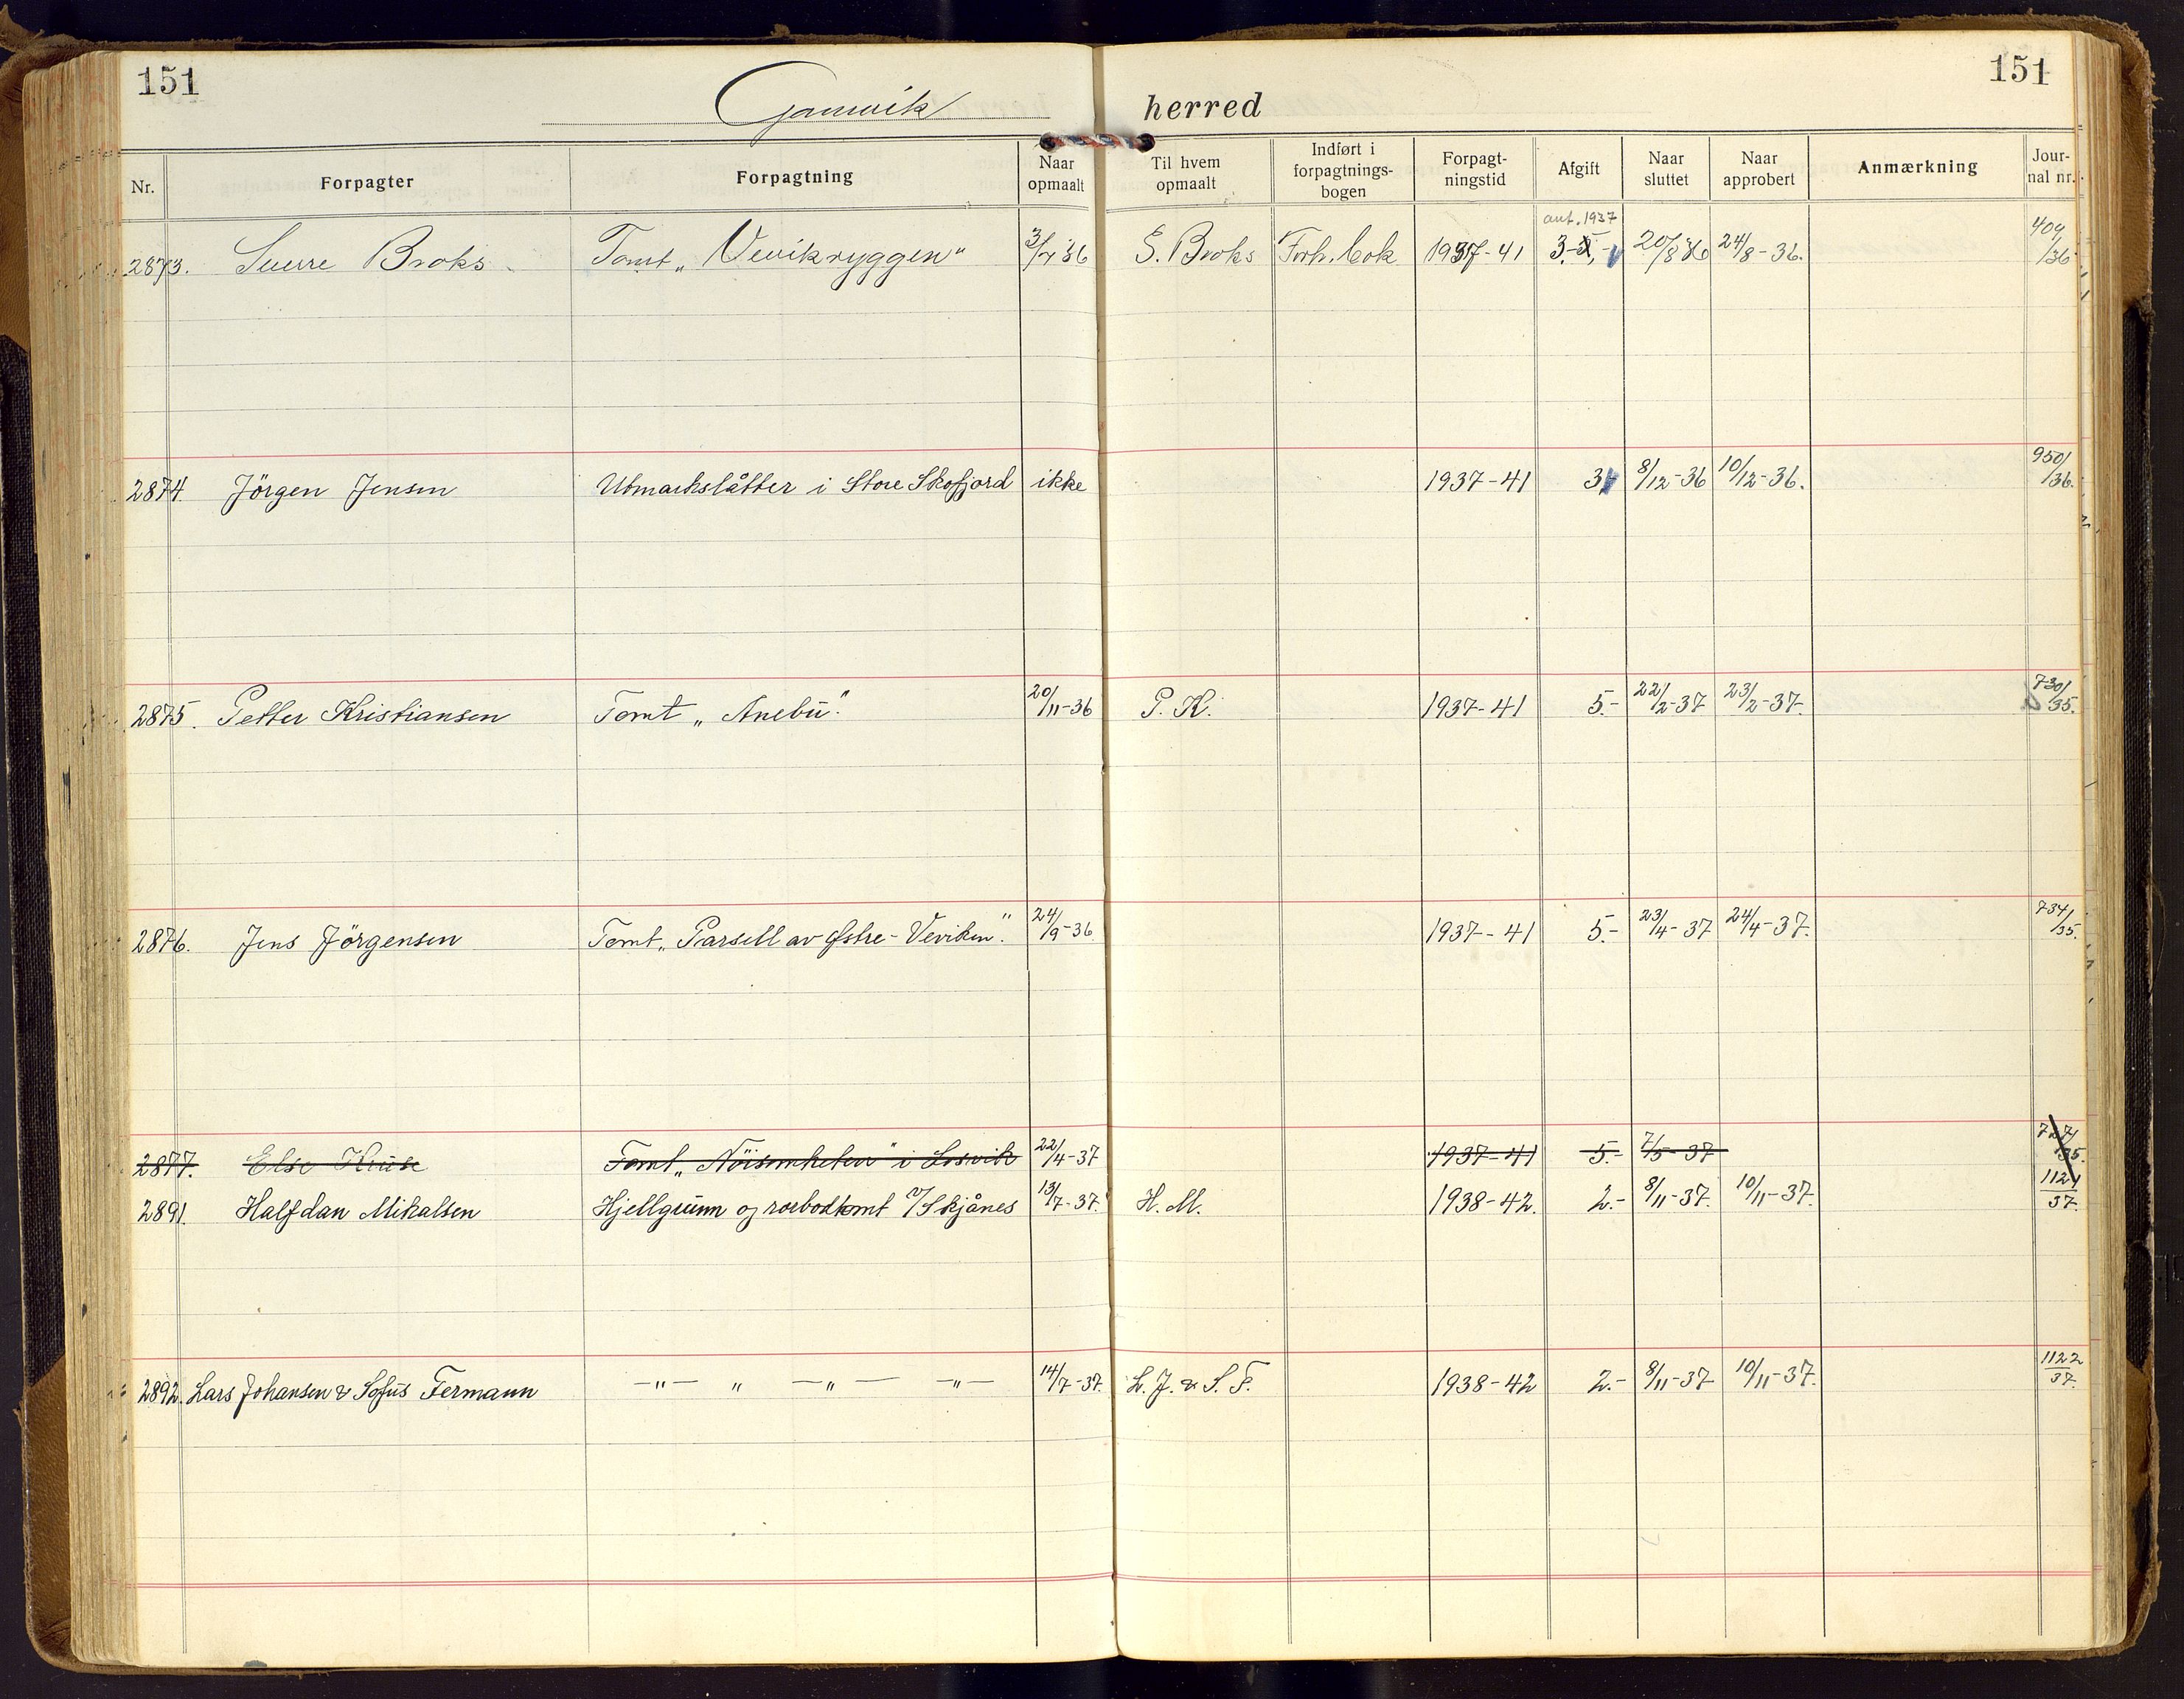 151 Gamvik herred 151
Nr. Forpagter Forpagtning Naar opmaalt Til hvem opmaalt Indført i forpagtnings-bogen Forpagt-ningstid Afgift Naar sluttet Naar approbert Anmærkning Jour-nal nr.
ant. 1937
2873. Sverre Broks Tomt „Vevikryggen" 3/7 36 S. Broks Forh. bok 1937-41 3.- 20/8 36 24/8-36. 409/36
2874. Jörgen Jensen Utmarkslåtter i Store Skofjord ikke 1937-41 3 8/12-36 10/12-36. 950/36.
2875. Petter Kristiansen Tomt „Anebu". 20/11-36 P. K. 1937-41 5.- 22/2-37 23/2-37. 730/35.
2876. Jens Jörgensen Tomt „Parsell av Østre-Veviken". 24/9-36 1937-41 5.- 23/4-37 24/4-37. 734/35.
2877. Else Kruse Tomt „Nöisomheten" i Losvik 22/4-37 1937-41 5.- 7/5-37 727/35.
2891. Halfdan Mikalsen Hjellgrunn og roebodtomt v/Skjånes 13/7-37. H. M. 1938-42. 2.- 8/11-37. 10/11-37. 1121/37.
2892. Lars Johansen & Sofus Fermann -"- " -"- -"- 14/7-37. L. J. & S. F. 1938-42 2.- 8/11-37 10/11-37. 1122/37.